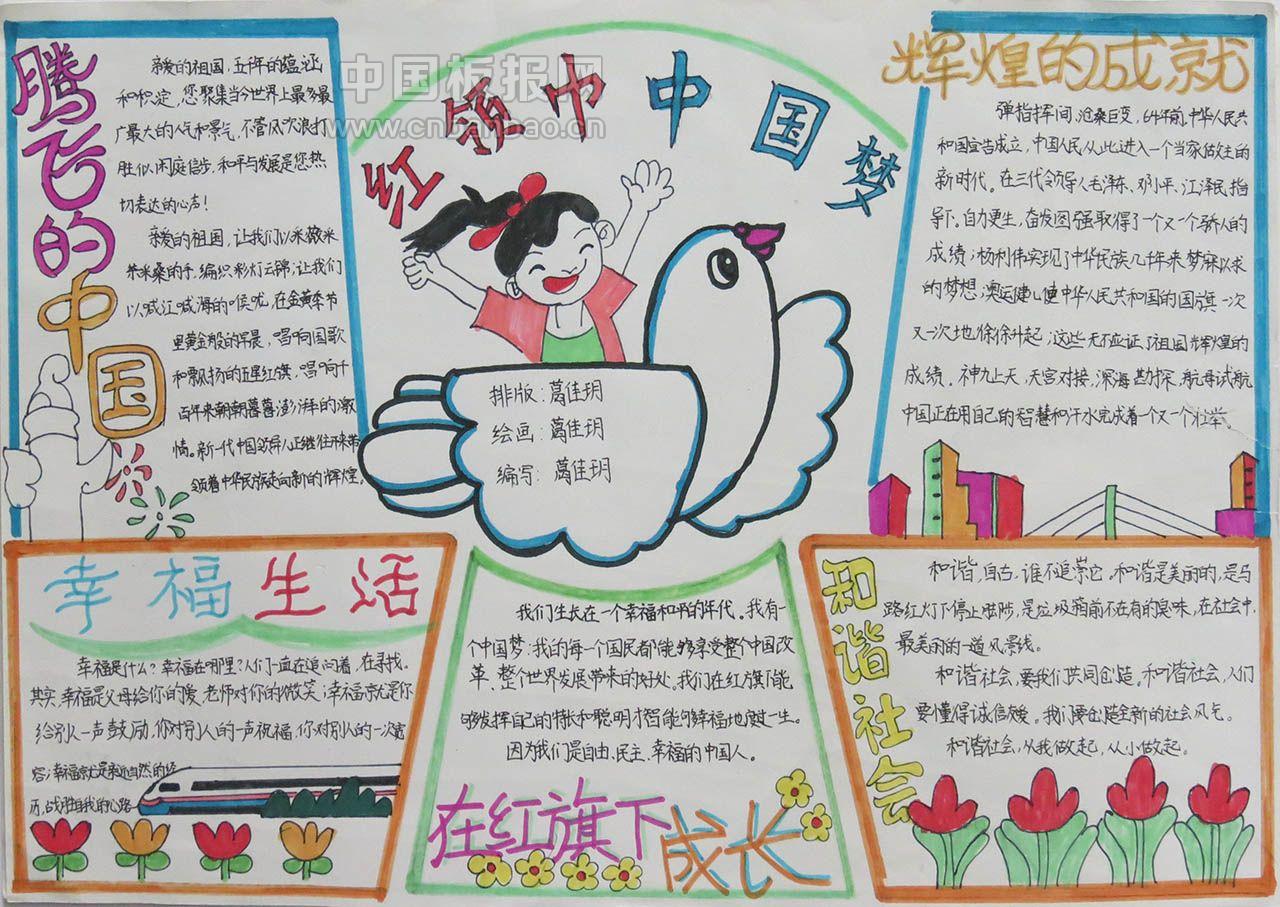 中国板报网
www.cnbanbao.cn
红领巾中国梦
腾飞的中国
亲爱的祖国,五千年的蕴涵
和积淀,您聚集当今世界上最多最
广最大的人气和景气,不管风吹浪打
胜似闲庭信步,和平与发展是您热
切表达的心声!
亲爱的祖国,让我们以采薇采
桑的手,编织彩灯云锦;让我们
以喊江喊海的喉咙,在金黄季节
里黄金般的早晨,唱响国歌
和飘扬的五星红旗,唱响千
百年来朝朝暮暮澎湃的激
情。新一代中国领导人正继往开来带
领着中华民族走向新的辉煌。
排版:葛佳玥
绘画:葛佳玥
编写:葛佳玥
辉煌的成就
弹指挥间,沧桑巨变,64年前,中华人民共
和国宣告成立,中国人民从此进入一个当家做主的
新时代。在三代领导人毛泽东、邓小平、江泽民指
导下。自力更生,奋发图强取得了一个又一个骄人的
成绩;杨利伟实现了中华民族几千年来梦寐以求
的梦想;澳运健儿使中华人民共和国的国旗一次
又一次地徐徐升起;这些无不应证了祖国辉煌的
成绩。神九上天,天宫对接,深海勘探,航母试航
中国正在用自己的智慧和汗水完成着一个又一个壮举。
幸福生活
幸福是什么?幸福在哪里?人们一直在追问着,在寻找。
其实,幸福是父母给你的爱,老师对你的微笑;幸福就是你
给别人一声鼓励,你对别人的一声祝福,你对别人的一次宽
容;幸福就是亲近自然的经
历,战胜自我的心路
我们生长在一个幸福和平的年代。我有一
个中国梦:我的每一个国民都能够享受整个中国改
革、整个世界发展带来的好处。我们在红旗下能
够发挥自己的特长和聪明才智能够幸福地度过一生。
因为我们是自由、民主、幸福的中国人。
在红旗下成长
和谐社会
和谐,自古,谁不追崇它。和谐是美丽的,是马
路红灯下停止的脚步,是垃圾箱前不在有的臭味,在社会中,
最美丽的一道风景线。
和谐社会,要我们共同创造。和谐社会,人们
要懂得诚信友爱。我们要创造全新的社会风气。
和谐社会,从我做起,从小做起。